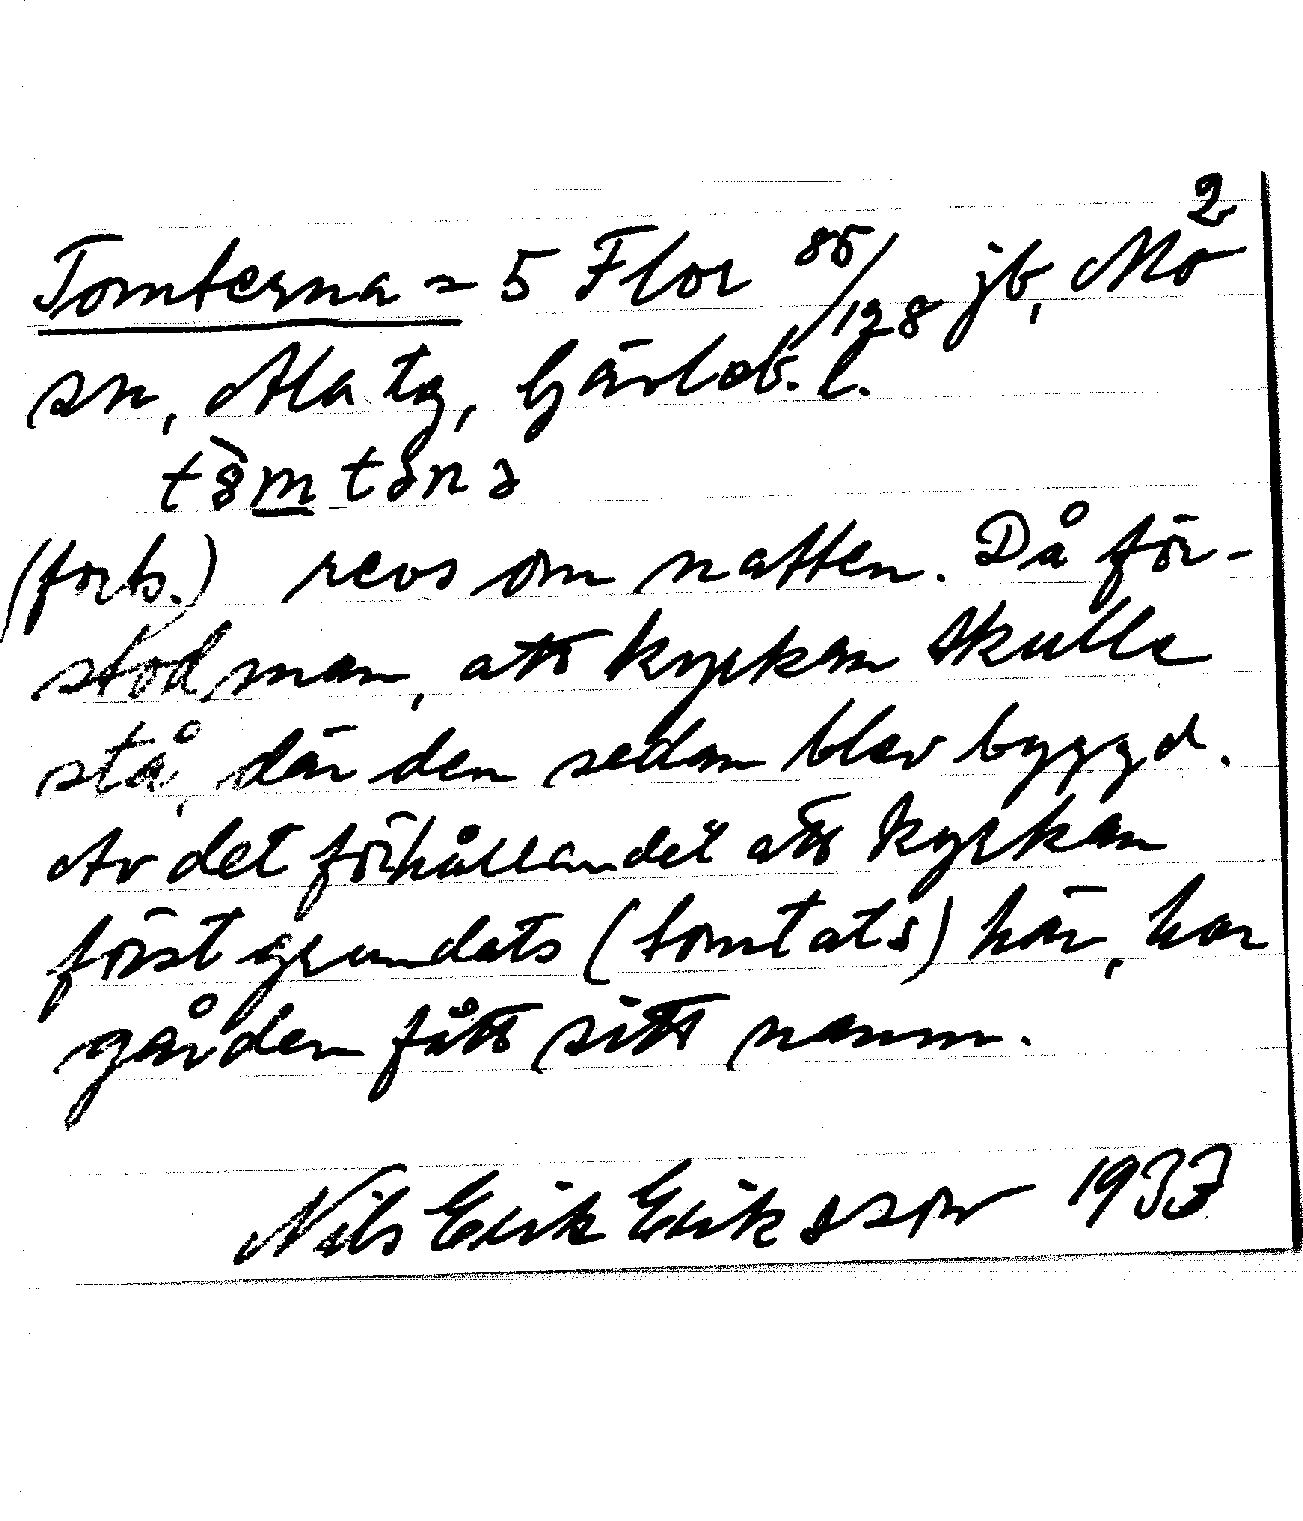 2
Tomterna = 5 Flor 85/128 jb, Mo
sn, Ala tg, Gävleb. l.
(forts.) revs om natten. Då för-
stod man, att kyrkan skulle
stå, där den sedan blev byggd.
Av det förhållandet att kyrkan
först grundats (tomtats) här, har
gården fått sitt namn.
Nils Erik Eriksson 1937